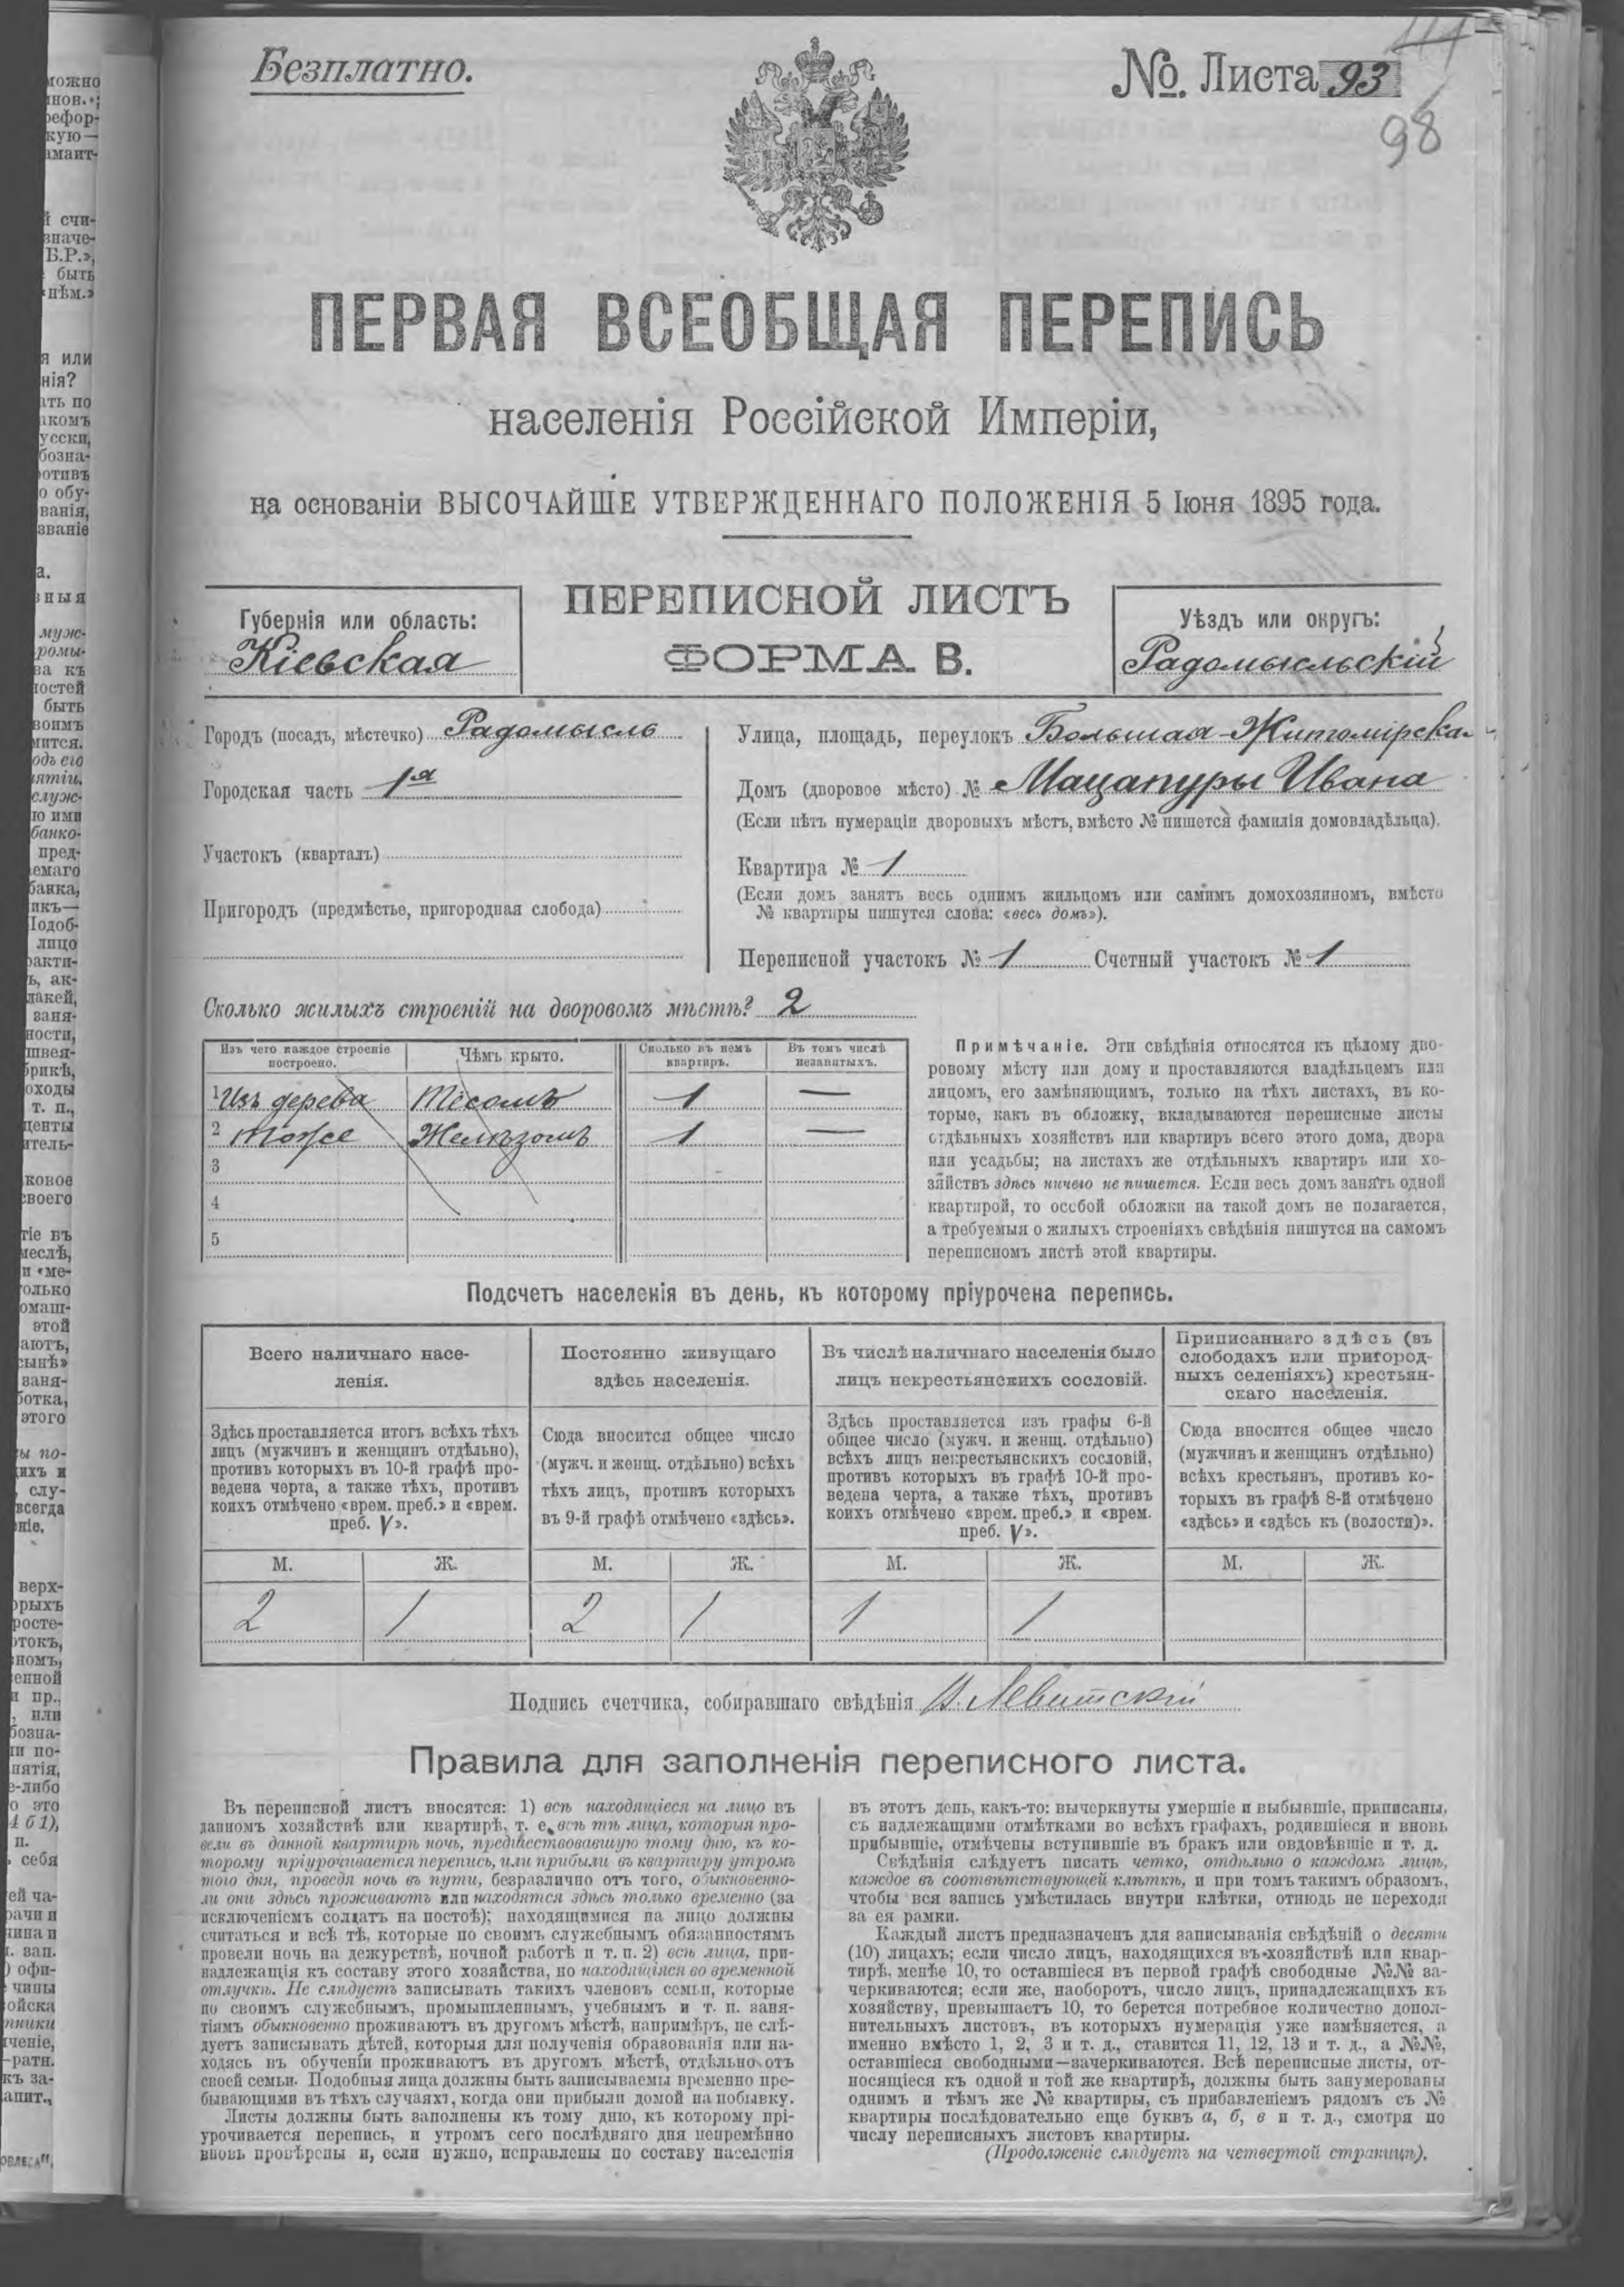 Безплатно.
№. Листа 93
98
ПЕРВАЯ ВСЕОБЩАЯ ПЕРЕПИСЬ
населенія Россійской Имперіи,
на основаніи ВЫСОЧАЙШЕ УТВЕРЖДЕННАГО ПОЛОЖЕНІЯ 5 Іюня 1895 года.
Губернія или область:
Кіевская
ПЕРЕПИСНОЙ ЛИСТЪ
ФОРМА В.
Уѣздъ или округъ:
Радомысльскій
Городъ (посадъ, мѣстечко) Радомысль
Городская часть 1я
Участокъ (кварталъ)
Пригородъ (предмѣстье, пригородная слобода)
Улица, площадь, переулокъ Большая-Житомірска
Домъ (дворовое мѣсто) № Мацапуры Ивана
(Если нѣтъ нумераціи дворовыхъ мѣстъ, вмѣсто № пишется фамилія домовладѣльца).
Квартира № 1
(Если домъ занятъ весь однимъ жильцомъ или самимъ домохозяиномъ, вмѣсто
№ квартиры пишутся слова: «весь домъ»).
Переписной участокъ № 1 Счетный участокъ № 1
Сколько жилыхъ строеній на дворовомъ мѣстѣ? 2
Изъ чего каждое строеніе построено. Чѣмъ крыто. Сколько въ немъ квартиръ. Въ томъ числѣ незанятыхъ.
1 Изъ дерева Тесомъ 1 —
2 Тоже Желѣзомъ 1 —
3
4
5
Примѣчаніе. Эти свѣдѣнія относятся къ цѣлому дво-
ровому мѣсту или дому и проставляются владѣльцемъ или
лицомъ, его замѣняющимъ, только на тѣхъ листахъ, въ ко-
торые, какъ въ обложку, вкладываются переписные листы
отдѣльныхъ хозяйствъ или квартиръ всего этого дома, двора
или усадьбы; на листахъ же отдѣльныхъ квартиръ или хо-
зяйствъ здѣсь ничего не пишется. Если весь домъ занятъ одной
квартирой, то особой обложки на такой домъ не полагается,
а требуемыя о жилыхъ строеніяхъ свѣдѣнія пишутся на самомъ
переписномъ листѣ этой квартиры.
Подсчетъ населенія въ день, къ которому пріурочена перепись.
Всего наличнаго насе-
ленія.
Здѣсь проставляется итогъ всѣхъ тѣхъ
лицъ (мужчинъ и женщинъ отдѣльно),
противъ которыхъ въ 10-й графѣ про-
ведена черта, а также тѣхъ, противъ
коихъ отмѣчено «врем. преб.» и «врем.
преб. V».
Постоянно живущаго
здѣсь населенія.
Сюда вносится общее число
(мужч. и женщ. отдѣльно) всѣхъ
тѣхъ лицъ, противъ которыхъ
въ 9-й графѣ отмѣчено «здѣсь».
Въ числѣ наличнаго населенія было
лицъ некрестьянскихъ сословій.
Здѣсь проставляется изъ графы 6-й
общее число (мужч. и женщ. отдѣльно)
всѣхъ лицъ некрестьянскихъ сословій,
противъ которыхъ въ графѣ 10-й про-
ведена черта, а также тѣхъ, противъ
коихъ отмѣчено «врем. преб.» и «врем.
преб. V».
Приписаннаго здѣсь (въ
слободахъ или пригород-
ныхъ селеніяхъ) крестьян-
скаго населенія.
Сюда вносится общее число
(мужчинъ и женщинъ отдѣльно)
всѣхъ крестьянъ, противъ ко-
торыхъ въ графѣ 8-й отмѣчено
«здѣсь» и «здѣсь къ (волости)».
М. Ж. М. Ж. М. Ж. М. Ж.
2 1 2 1 1 1
Подпись счетчика, собиравшаго свѣдѣнія Левитскій
Правила для заполненія переписного листа.
Въ переписной листъ вносятся: 1) всѣ находящіеся на лицо въ
данномъ хозяйствѣ или квартирѣ, т. е. всѣ тѣ лица, которыя про-
вели въ данной квартирѣ ночь, предшествовавшую тому дню, къ ко-
торому пріурочивается перепись, или прибыли въ квартиру утромъ
того дня, проведя ночь въ пути, безразлично отъ того, обыкновенно-
ли они здѣсь проживаютъ или находятся здѣсь только временно (за
исключеніемъ солдатъ на постоѣ); находящимися на лицо должны
считаться и всѣ тѣ, которые по своимъ служебнымъ обязанностямъ
провели ночь на дежурствѣ, ночной работѣ и т. п. 2) всѣ лица, при-
надлежащія къ составу этого хозяйства, но находящіяся во временной
отлучкѣ. Не слѣдуетъ записывать такихъ членовъ семьи, которые
по своимъ служебнымъ, промышленнымъ, учебнымъ и т. п. заня-
тіямъ обыкновенно проживаютъ въ другомъ мѣстѣ, напримѣръ, не слѣ-
дуетъ записывать дѣтей, которыя для полученія образованія или на-
ходясь въ обученіи проживаютъ въ другомъ мѣстѣ, отдѣльно отъ
своей семьи. Подобныя лица должны быть записываемы временно пре-
бывающими въ тѣхъ случаяхъ, когда они прибыли домой на побывку.
Листы должны быть заполнены къ тому дню, къ которому прі-
урочивается перепись, и утромъ сего послѣдняго дня непремѣнно
вновь провѣрены и, если нужно, исправлены по составу населенія
въ этотъ день, какъ-то: вычеркнуты умершіе и выбывшіе, приписаны,
съ надлежащими отмѣтками во всѣхъ графахъ, родившіеся и вновь
прибывшіе, отмѣчены вступившіе въ бракъ или овдовѣвшіе и т. д.
Свѣдѣнія слѣдуетъ писать четко, отдѣльно о каждомъ лицѣ,
каждое въ соотвѣтствующей клѣткѣ, и при томъ такимъ образомъ,
чтобы вся запись умѣстилась внутри клѣтки, отнюдь не переходя
за ея рамки.
Каждый листъ предназначенъ для записыванія свѣдѣній о десяти
(10) лицахъ; если число лицъ, находящихся въ хозяйствѣ или квар-
тирѣ, менѣе 10, то оставшіеся въ первой графѣ свободные №№ за-
черкиваются; если же, наоборотъ, число лицъ, принадлежащихъ къ
хозяйству, превышаетъ 10, то берется потребное количество допол-
нительныхъ листовъ, въ которыхъ нумерація уже измѣняется, а
именно вмѣсто 1, 2, 3 и т. д., ставится 11, 12, 13 и т. д., а №№,
оставшіеся свободными—зачеркиваются. Всѣ переписные листы, от-
носящіеся къ одной и той же квартирѣ, должны быть занумерованы
однимъ и тѣмъ же № квартиры, съ прибавленіемъ рядомъ съ №
квартиры послѣдовательно еще буквъ а, б, в и т. д., смотря по
числу переписныхъ листовъ квартиры.
(Продолженіе слѣдуетъ на четвертой страницѣ).